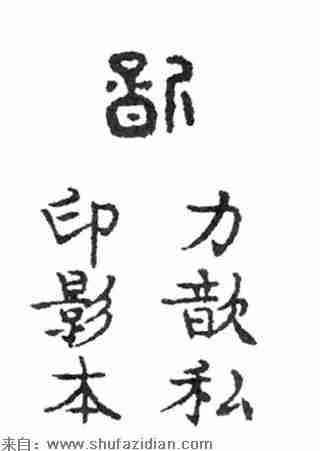 力歆私
印影本
来自：www.shufazidian.com